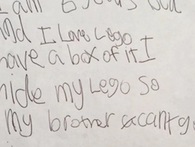 I am 6 years old
and I Love Lego I
have a box of it I
hide my Lego so
my brother